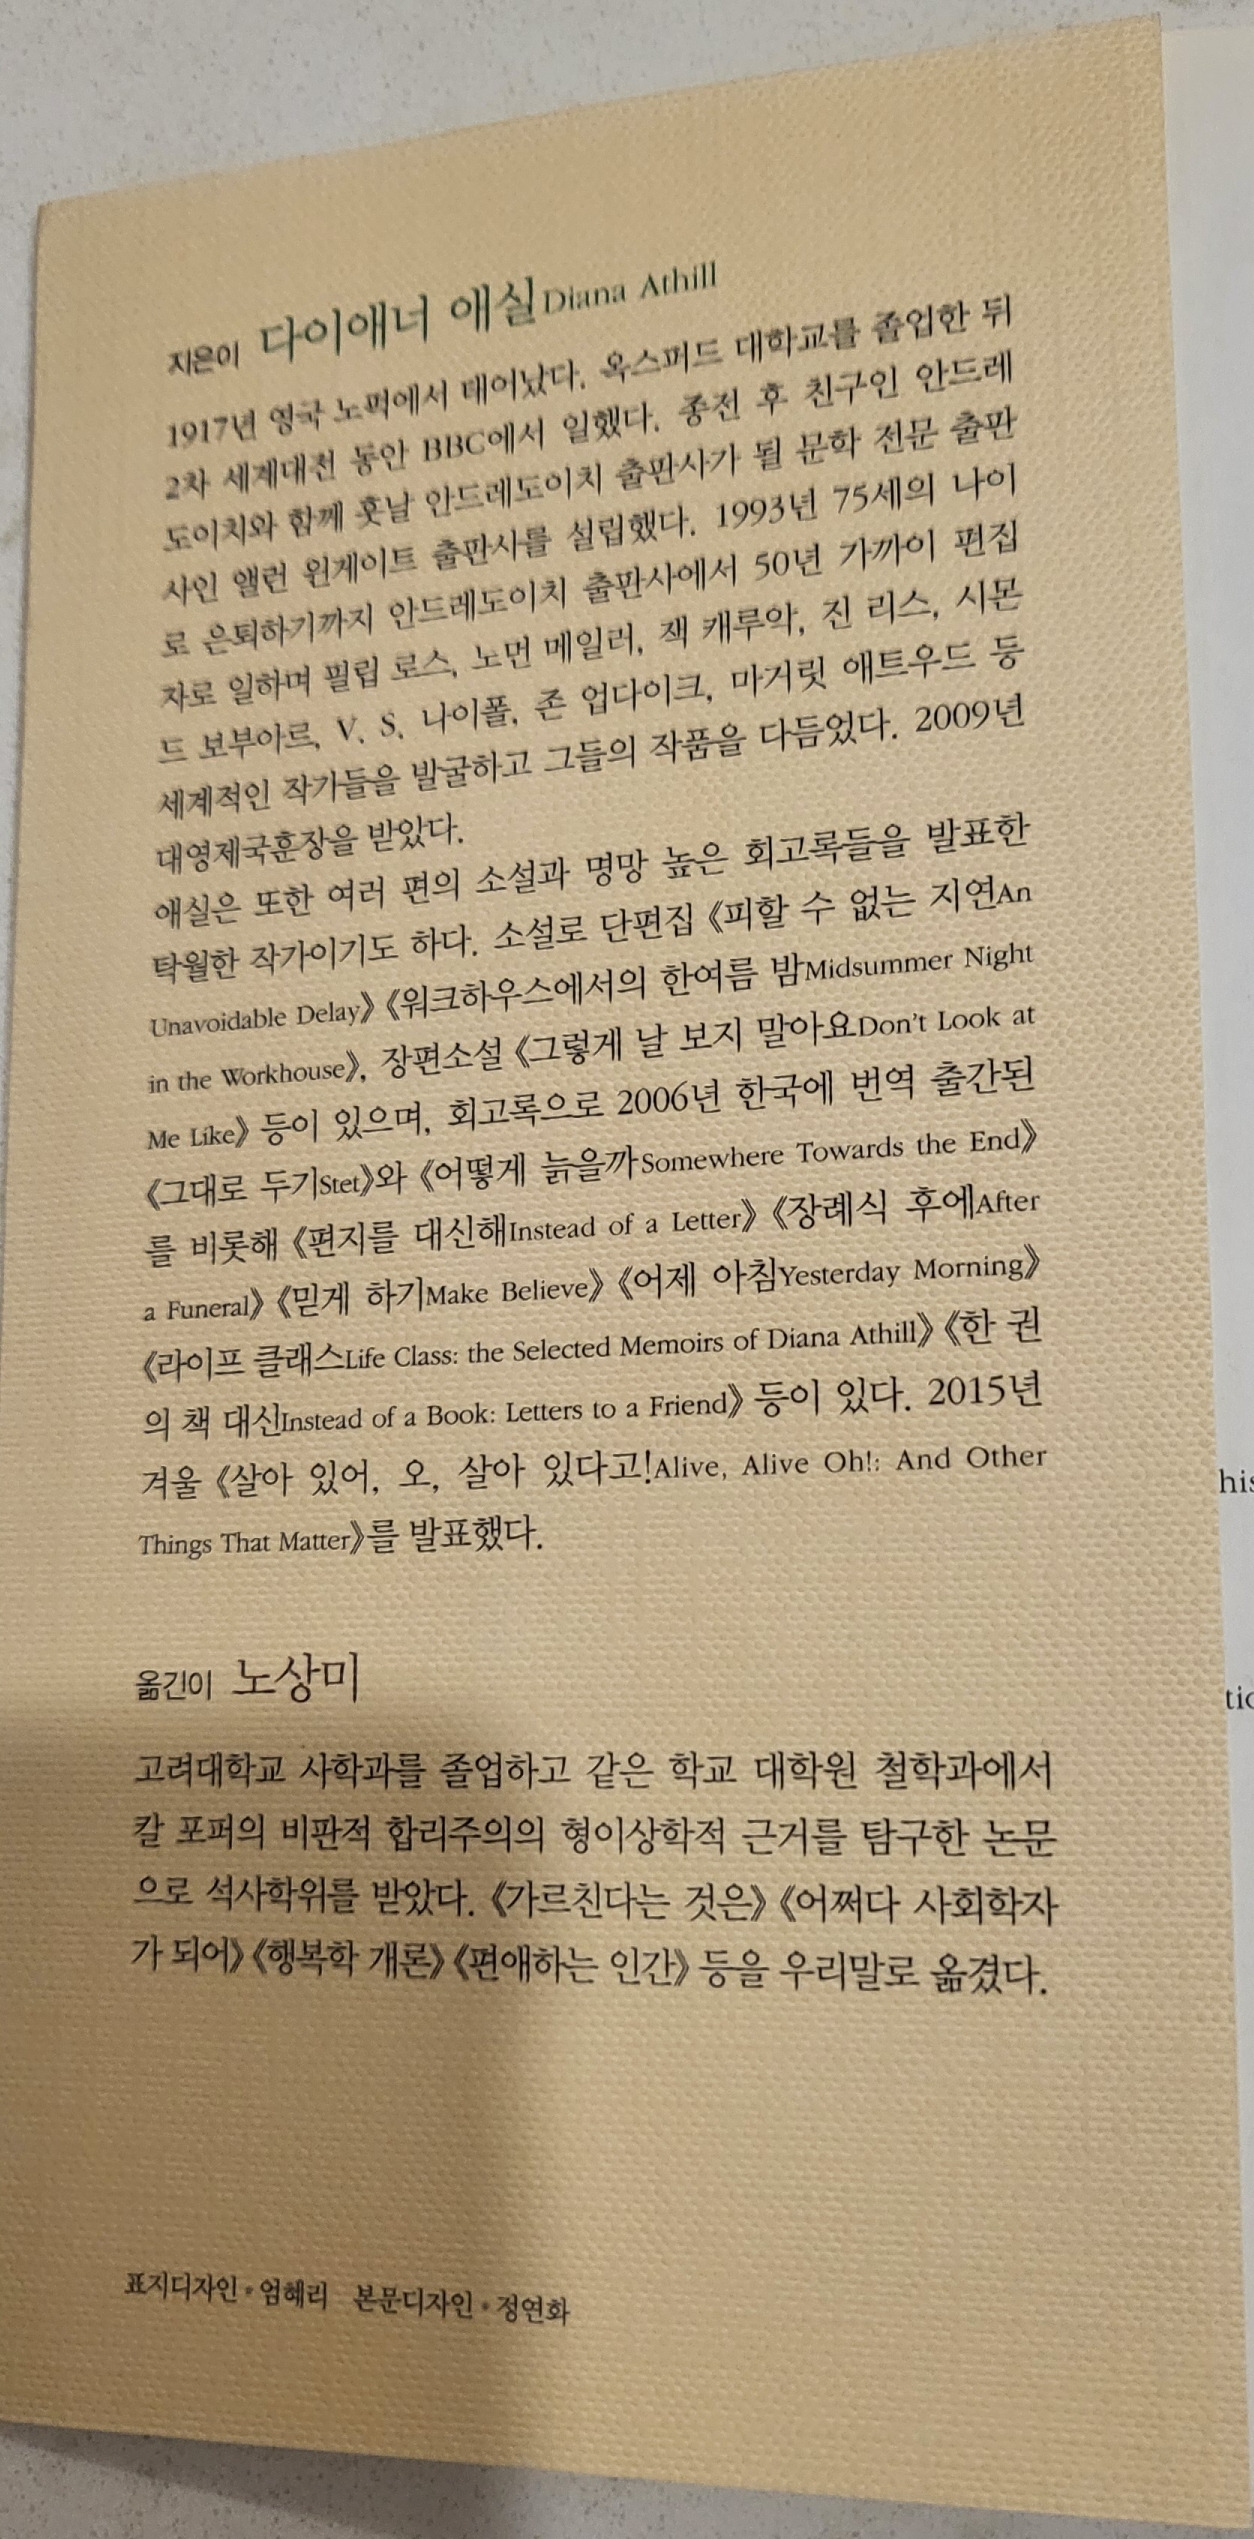 지은이 다이애너 애실Diana Athill
1917년 영국 노퍽에서 태어났다. 옥스퍼드 대학교를 졸업한 뒤
2차 세계대전 동안 BBC에서 일했다. 종전 후 친구인 안드레
도이치와 함께 훗날 안드레도이치 출판사가 될 문학 전문 출판
사인 앨런 윈게이트 출판사를 설립했다. 1993년 75세의 나이
로 은퇴하기까지 안드레도이치 출판사에서 50년 가까이 편집
자로 일하며 필립 로스, 노먼 메일러, 잭 캐루악, 진 리스, 시몬
드 보부아르, V. S. 나이폴, 존 업다이크, 마거릿 애트우드 등
세계적인 작가들을 발굴하고 그들의 작품을 다듬었다. 2009년
대영제국훈장을 받았다.
애실은 또한 여러 편의 소설과 명망 높은 회고록들을 발표한
탁월한 작가이기도 하다. 소설로 단편집 《피할 수 없는 지연An
Unavoidable Delay》 《워크하우스에서의 한여름 밤Midsummer Night
in the Workhouse》, 장편소설 《그렇게 날 보지 말아요Don't Look at
Me Like》 등이 있으며, 회고록으로 2006년 한국에 번역 출간된
《그대로 두기Stet》와 《어떻게 늙을까Somewhere Towards the End》
를 비롯해 《편지를 대신해Instead of a Letter》 《장례식 후에After
a Funeral》 《믿게 하기Make Believe》 《어제 아침Yesterday Morning》
《라이프 클래스Life Class: the Selected Memoirs of Diana Athill》 《한 권
의 책 대신Instead of a Book: Letters to a Friend》 등이 있다. 2015년
겨울 《살아 있어, 오, 살아 있다고!Alive, Alive Oh!: And Other
Things That Matter》를 발표했다.
옮긴이 노상미
고려대학교 사학과를 졸업하고 같은 학교 대학원 철학과에서
칼 포퍼의 비판적 합리주의의 형이상학적 근거를 탐구한 논문
으로 석사학위를 받았다. 《가르친다는 것은》 《어쩌다 사회학자
가 되어》 《행복학 개론》 《편애하는 인간》 등을 우리말로 옮겼다.
표지디자인•엄혜리 본문디자인•정연화